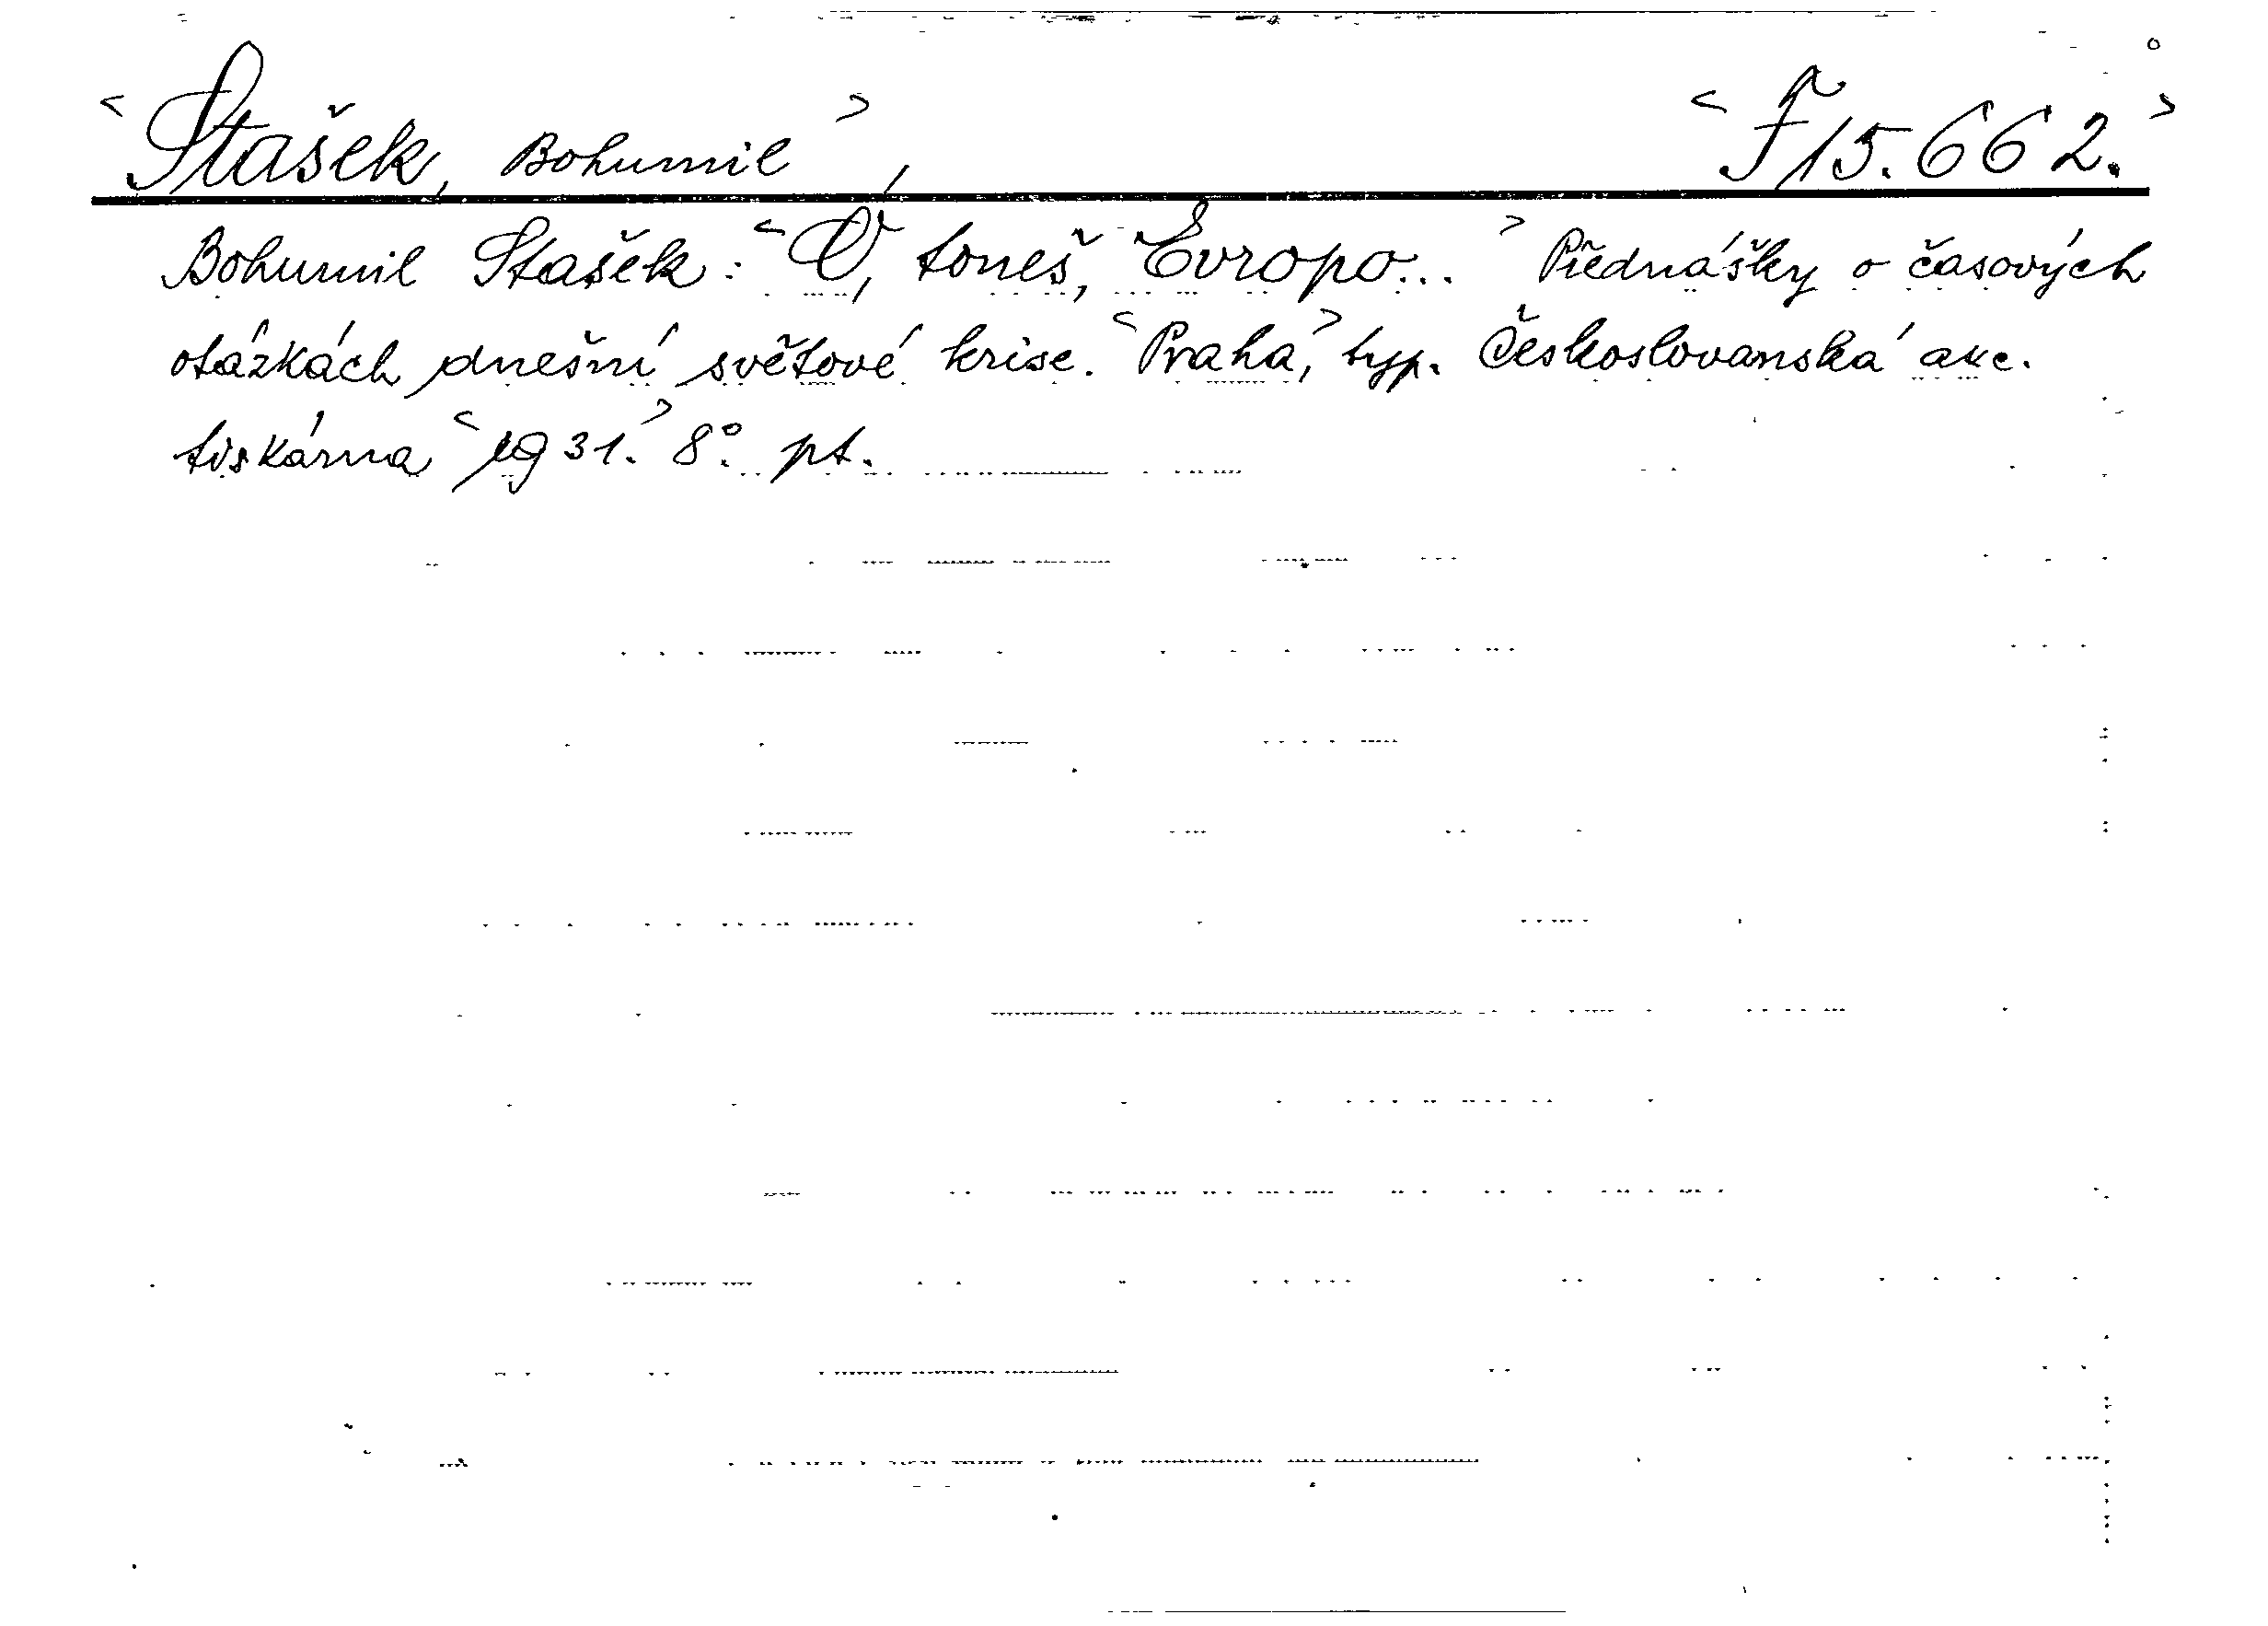 <Stašek, Bohumil>, <F 15.662.>
Bohumil Stašek: <Ó, toneš, Evropo...> Přednášky o časových
otázkách dnešní světové krise. <Praha,> typ. Českoslovanská akc.
tiskárna <1931.> 8°. pt.